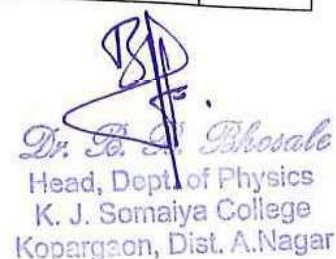 Dr. B. Bhosale
Head, Dept. of Physics
K. J. Somaiya College
Kopargaon, Dist. A.Nagar